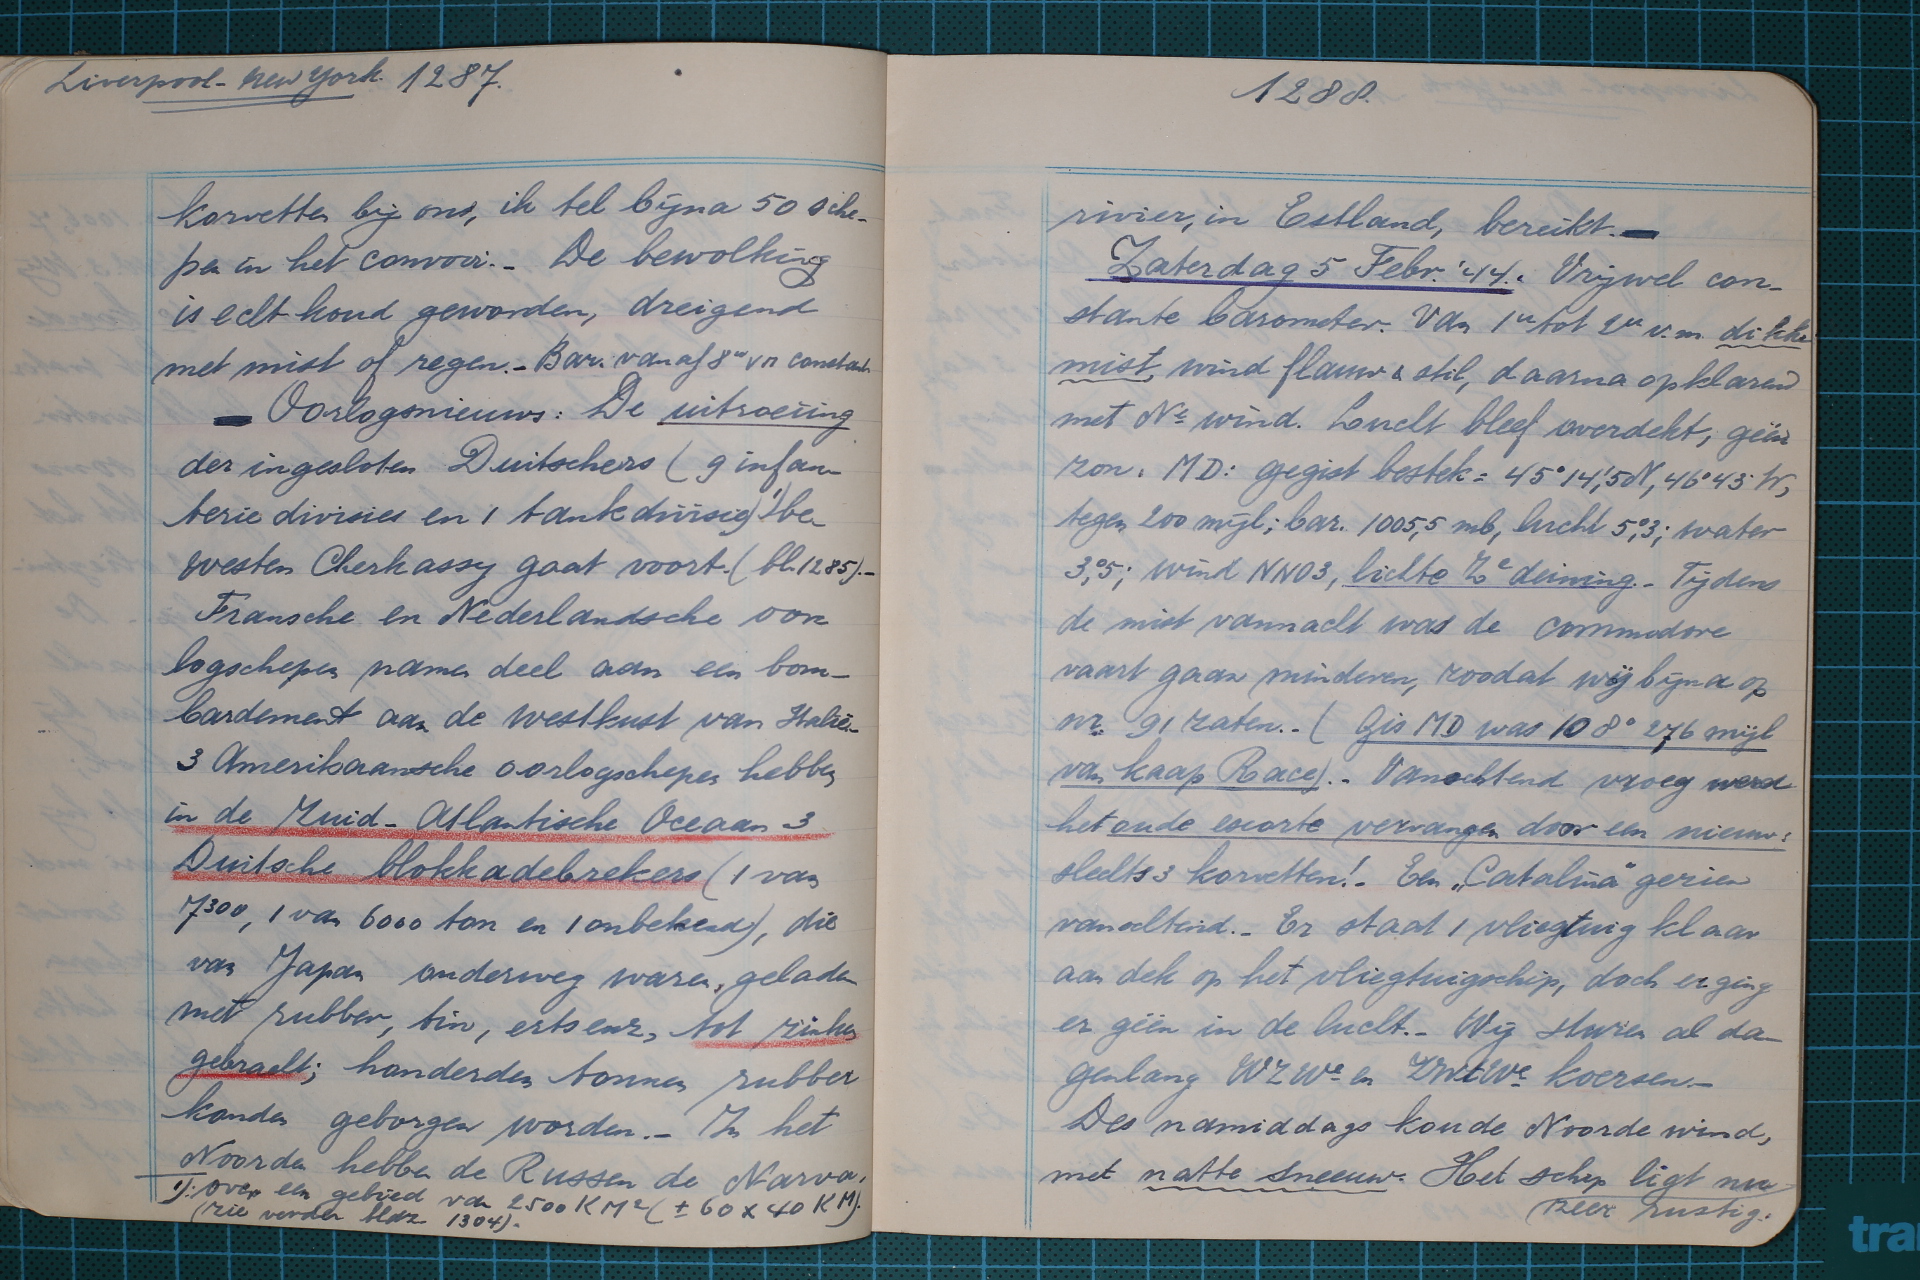 Liverpool - New York. 1287.
korvetten bij ons, ik tel bijna 50 sche-
pen in het convooi. - De bewolking
is echt koud geworden, dreigend
met mist of regen. - Bar. vanaf 8u vm constant
Oorlogsnieuws: De uitroeiing
der ingesloten Duitschers (9 infan-
terie divisies en 1 tankdivisie) 1) be-
westen Cherkassy gaat voort. (bl. 1285). -
Fransche en Nederlandsche oor-
logschepen namen deel aan een bom-
bardement aan de westkust van Italië. -
3 Amerikaansche oorlogschepen hebben
in de Zuid-Atlantische Oceaan 3
Duitsche blokkadebrekers (1 van
7300, 1 van 6000 ton en 1 onbekend), die
van Japan onderweg waren, geladen
met rubber, tin, erts enz, tot zinken
gebracht; honderden tonnen rubber
konden geborgen worden. - In het
Noorden hebben de Russen de Narva,
1): over een gebied van 2500 KM² (± 60 x 40 KM).
(zie verder bladz 1304). -
1288.
rivier, in Estland, bereikt. -
Zaterdag 5 Febr. '44. Vrijwel con-
stante barometer. Van 1u tot 2u v.m. dikke
mist, wind flauw & stil, daarna opklarend
met Ne wind. Lucht bleef overdekt, géén
zon. MD: gegist bestek = 45°14',5 N, 46°43' W,
tegen 200 mijl; bar. 1005,5 mb, lucht 5°,3; water
3°,5; wind NNO3, lichte Ze deining. - Tijdens
de mist vannacht was de commodore
vaart gaan minderen, zoodat wij bijna op
nr. 91 zaten. - (Gis MD was 108° 276 mijl
van kaap Race). - Vanochtend vroeg werd
het oude escorte vervangen door een nieuw:
slechts 3 korvetten! - Een „Catalina" gezien
vanochtend. - Er staat 1 vliegtuig klaar
aan dek op het vliegtuigschip, doch er ging
er géén in de lucht. - Wij sturen al da-
genlang WZWe en ZWtWe koersen. -
Des namiddags koude Noorde wind,
met natte sneeuw. Het schip ligt nu
zeer rustig.
tra